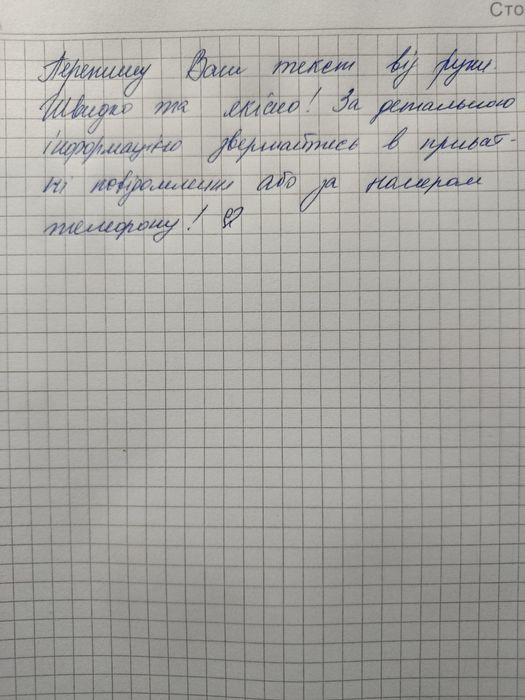 Сто
Перепишу Ваш текст від руки.
Швидко та якісно! За детальною
інформацією звертайтесь в приват-
ні повідомлення або за номером
телефону! ♡